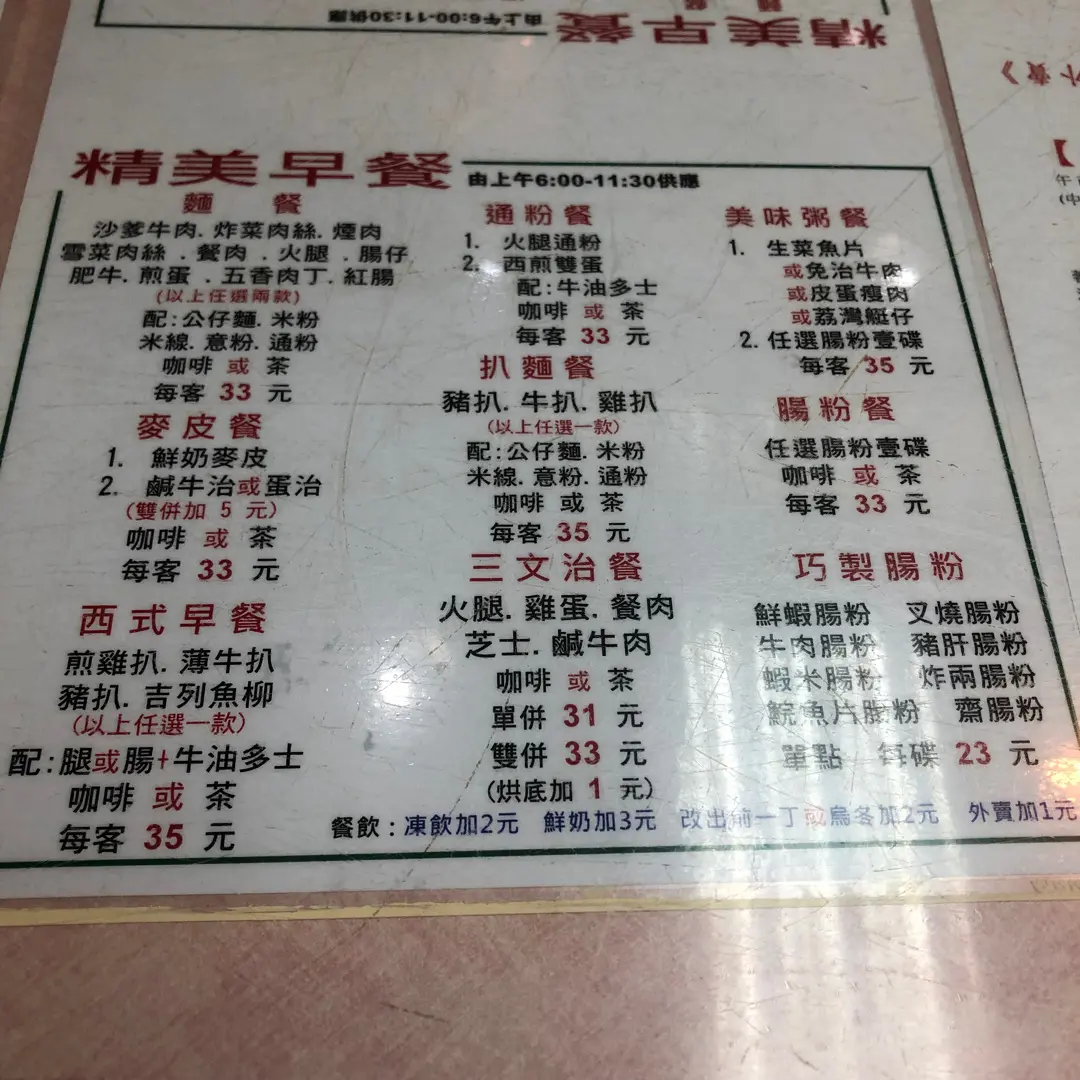 由上午6:00-11:30供應
精美早餐
外賣》
精美早餐 由上午6:00-11:30供應
麵 餐
沙爹牛肉. 炸菜肉絲. 煙肉
雪菜肉絲 . 餐肉 . 火腿 . 腸仔
肥牛. 煎蛋 . 五香肉丁. 紅腸
(以上任選兩款)
配:公仔麵. 米粉
米線. 意粉. 通粉
咖啡 或 茶
每客 33 元
麥皮餐
1. 鮮奶麥皮
2. 鹹牛治或蛋治
(雙併加 5 元)
咖啡 或 茶
每客 33 元
西式早餐
煎雞扒. 薄牛扒
豬扒. 吉列魚柳
(以上任選一款)
配:腿或腸+牛油多士
咖啡 或 茶
每客 35 元
通粉餐
1. 火腿通粉
2. 西煎雙蛋
配:牛油多士
咖啡 或 茶
每客 33 元
扒麵餐
豬扒. 牛扒. 雞扒
(以上任選一款)
配:公仔麵. 米粉
米線. 意粉. 通粉
咖啡 或 茶
每客 35 元
三文治餐
火腿. 雞蛋. 餐肉
芝士. 鹹牛肉
咖啡 或 茶
單併 31 元
雙併 33 元
(烘底加 1 元)
美味粥餐
1. 生菜魚片
或免治牛肉
或皮蛋瘦肉
或荔灣艇仔
2. 任選腸粉壹碟
每客 35 元
腸粉餐
任選腸粉壹碟
咖啡 或 茶
每客 33 元
巧製腸粉
鮮蝦腸粉 叉燒腸粉
牛肉腸粉 豬肝腸粉
蝦米腸粉 炸兩腸粉
鯇魚片腸粉 齋腸粉
單點 每碟 23 元
餐飲:凍飲加2元 鮮奶加3元 改出前一丁或烏冬加2元 外賣加1元